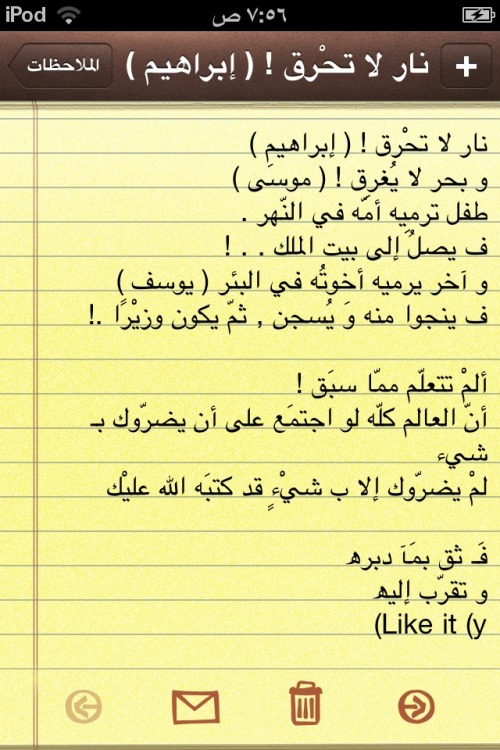 iPod ٧:٥٦ ص
الملاحظات نار لا تحْرق ! ( إبراهيم ) +
نار لا تحْرق ! ( إبراهيم )
و بحر لا يُغرق ! ( موسَى )
طفل ترميه أمّه في النّهر .
ف يصلُ إلى بيت الملك . . !
و آخر يرميه أخوتُه في البئر ( يوسف )
ف ينجوا منه وَ يُسجن , ثمّ يكون وزيْرًا .!
ألمْ تتعلّم ممّا سبَق !
أنّ العالم كلّه لو اجتمَع على أن يضرّوك بـ
شيء
لمْ يضرّوك إلا ب شيْءٍ قد كتبَه الله عليْك
فَـ ثق بمَآ دبره
و تقرّب إليه
(Like it (y